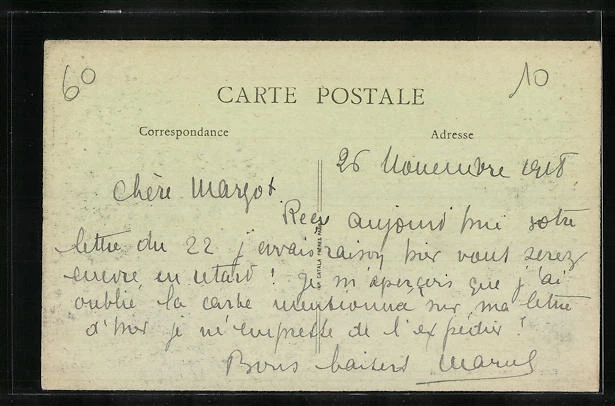 60
10
CARTE POSTALE
Correspondance
Adresse
26 Novembre 1918
Chère Margot
Reçu aujourd'hui votre
lettre du 22 j'avais raison hier vous serez
encore en retard ! Je m'aperçois que j'ai
oublié la carte mentionnée sur ma lettre
d'hier je m'empresse de l'expédier !
Bons baisers Marcel
CATALA FRÈRES PARIS